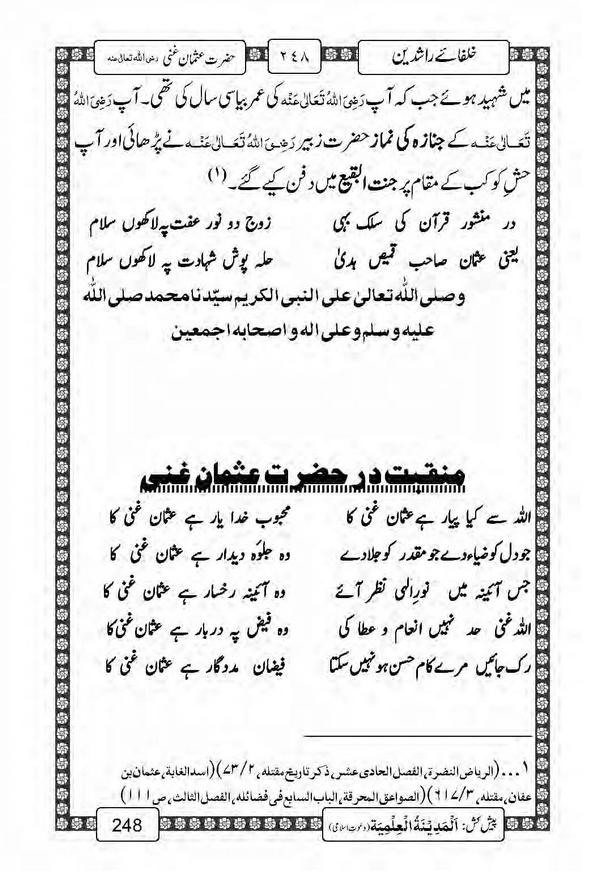 خلفائے راشدین
٢٤٨
حضرت عثمان غنی رضی اللہ تعالیٰ عنہ
میں شہید ہوئے جب کہ آپ رَضِیَ اللہُ تَعَالٰی عَنْہ کی عمر بیاسی سال کی تھی۔ آپ رَضِیَ اللہُ
تَعَالٰی عَنْہ کے جنازہ کی نماز حضرت زبیر رَضِیَ اللہُ تَعَالٰی عَنْہ نے پڑھائی اور آپ
حشِ کوکب کے مقام پر جنت البقیع میں دفن کیے گئے۔ (۱)
در منثور قرآن کی سلک بہی زوج دو نور عفت پہ لاکھوں سلام
یعنی عثمان صاحب قمیص ہدیٰ حلہ پوش شہادت پہ لاکھوں سلام
وصلی اللہ تعالیٰ علی النبی الکریم سیّدنا محمد صلی اللہ
علیہ وسلم وعلی الہ و اصحابہ اجمعین
منقبت در حضرت عثمان غنی
اللہ سے کیا پیار ہے عثمان غنی کا محبوب خدا یار ہے عثمان غنی کا
جو دل کو ضیاء دے جو مقدر کو جلا دے وہ جلوۂ دیدار ہے عثمان غنی کا
جس آئینہ میں نورِ الٰہی نظر آئے وہ آئینہ رخسار ہے عثمان غنی کا
اللہ غنی حد نہیں انعام و عطا کی وہ فیض پہ دربار ہے عثمان غنی کا
رک جائیں مرے کام حسن ہو نہیں سکتا فیضان مددگار ہے عثمان غنی کا
۱...(الریاض النضرۃ، الفصل الحادی عشر، ذکر تاریخ مقتلہ، ۲/۷۳)(اسد الغابۃ، عثمان بن
عفان، مقتلہ، ۳/۶۱۷)(الصواعق المحرقۃ، الباب السابع فی فضائلہ، الفصل الثالث، ص۱۱۱)
پیش کش: اَلْمَدِیْنَۃُ الْعِلْمِیَۃ (دعوتِ اسلامی)
248